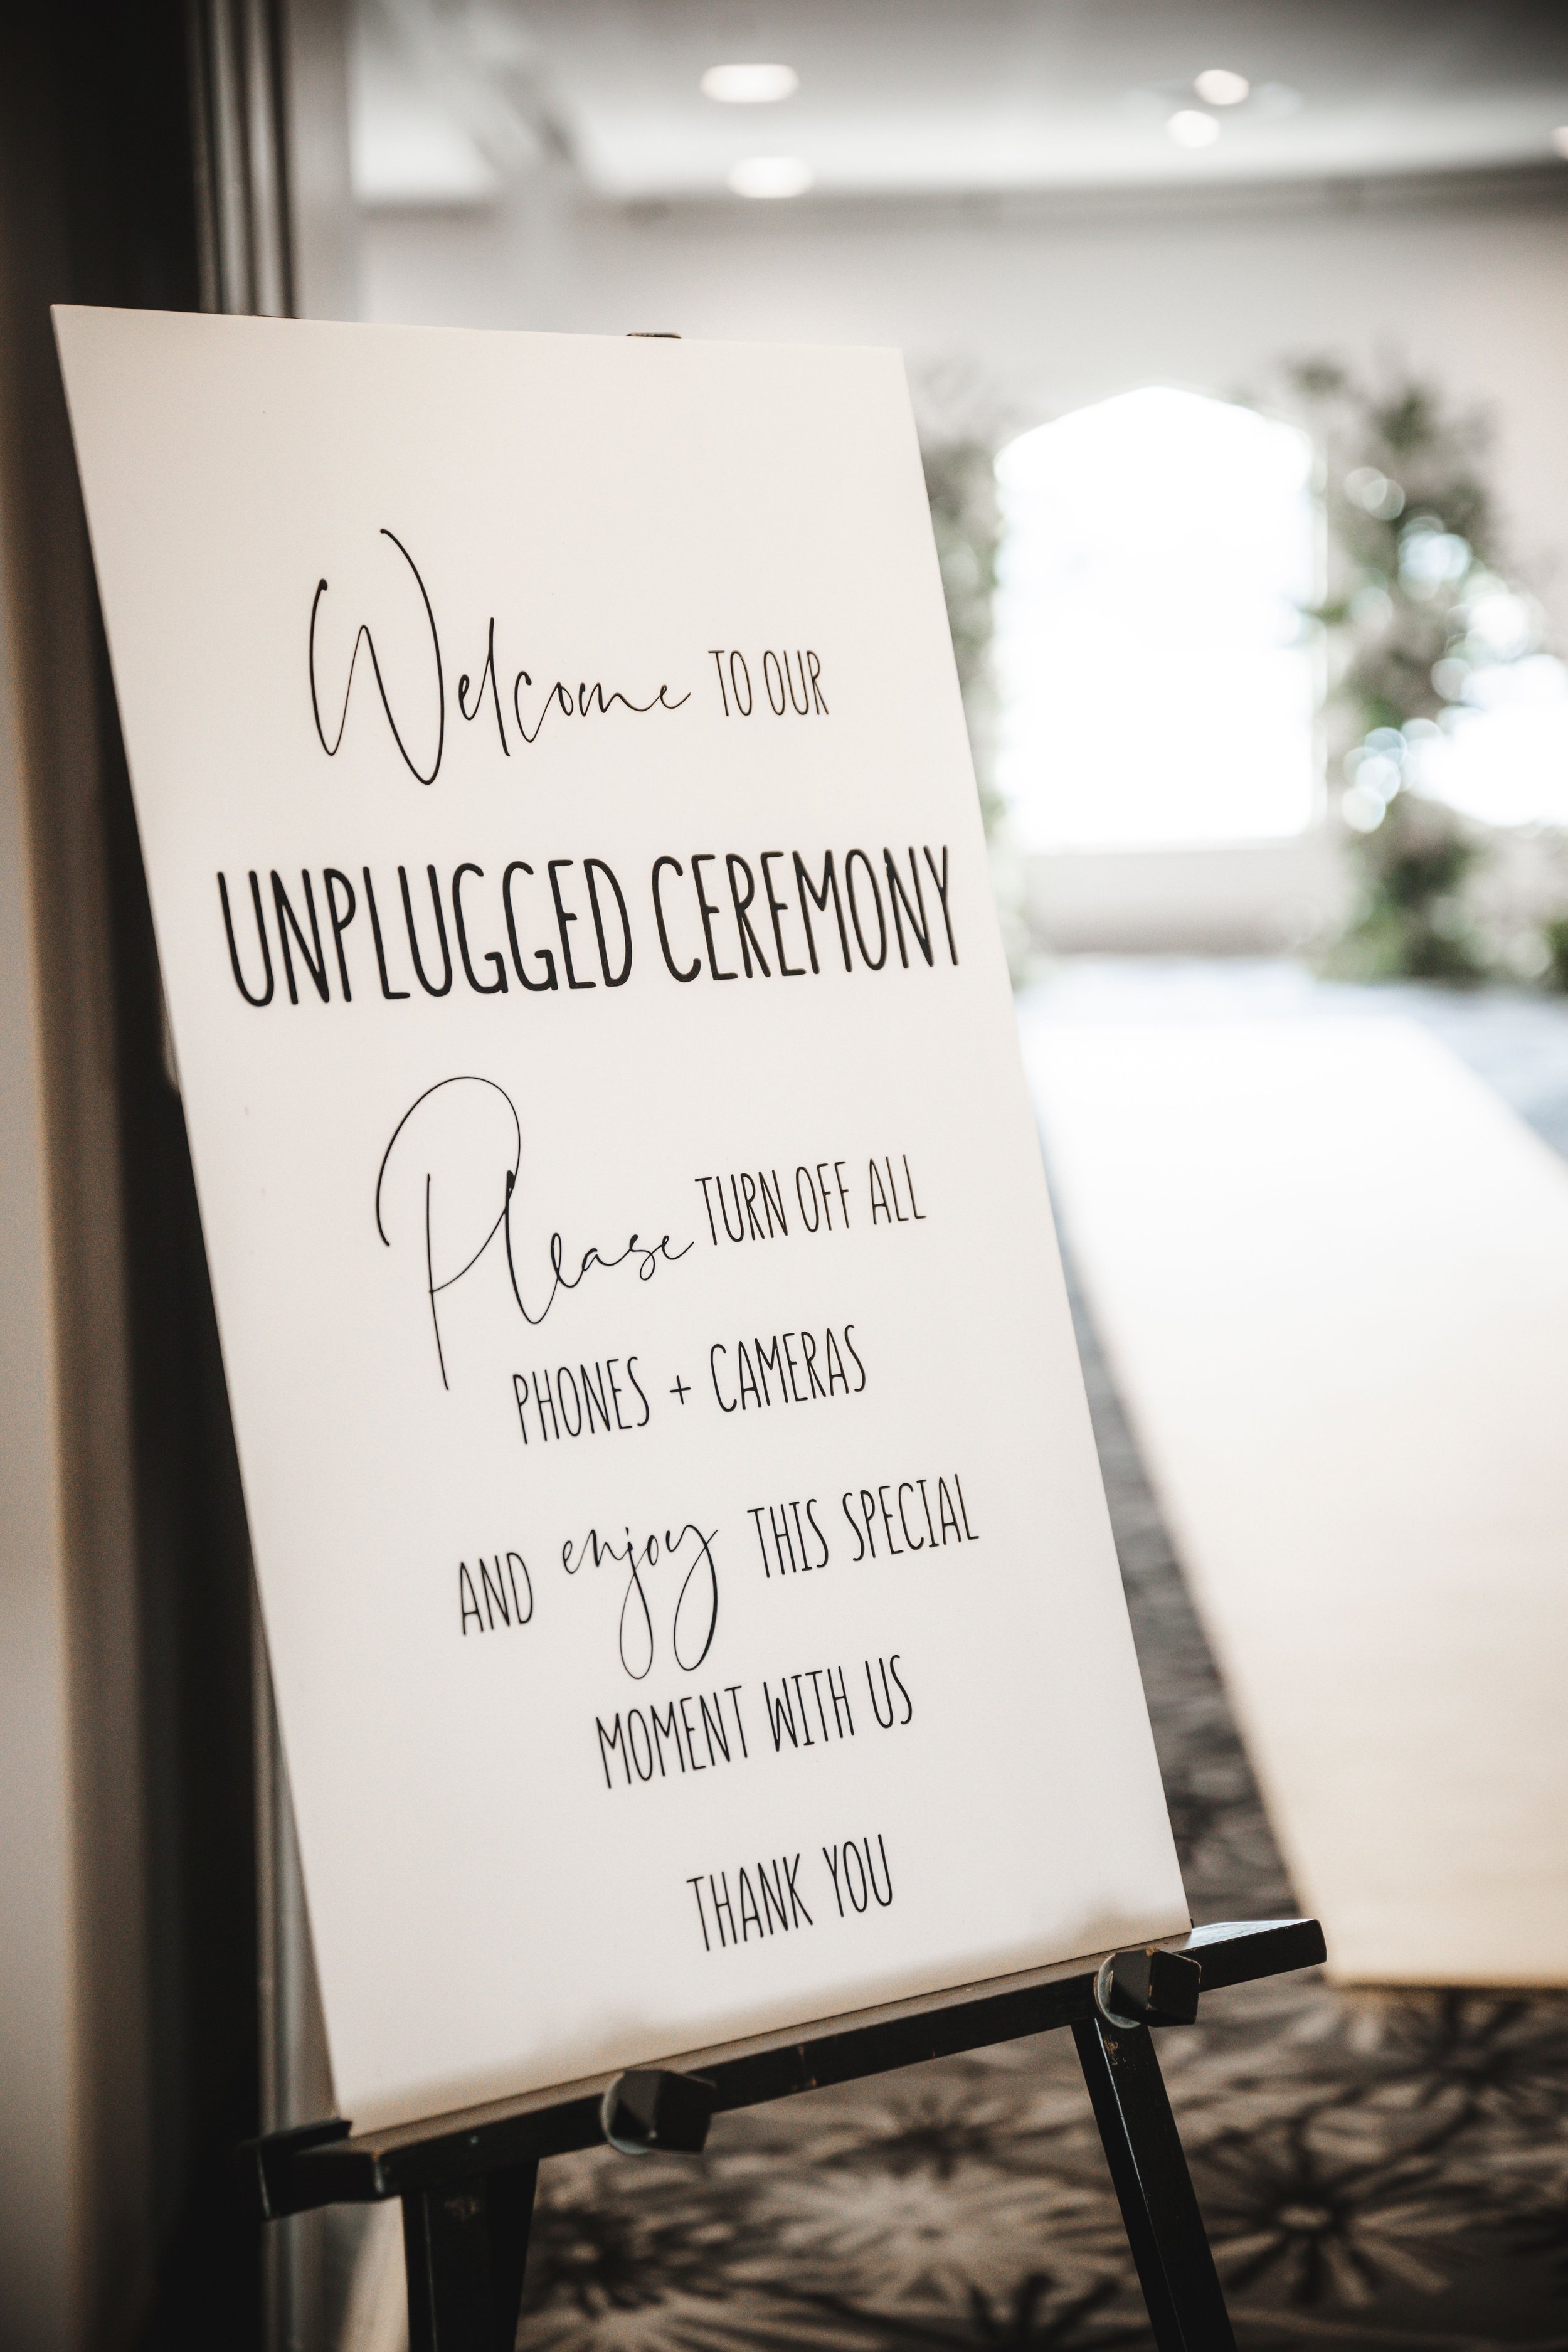 Welcome TO OUR
UNPLUGGED CEREMONY
Please TURN OFF ALL
PHONES + CAMERAS
AND enjoy THIS SPECIAL
MOMENT WITH US
THANK YOU